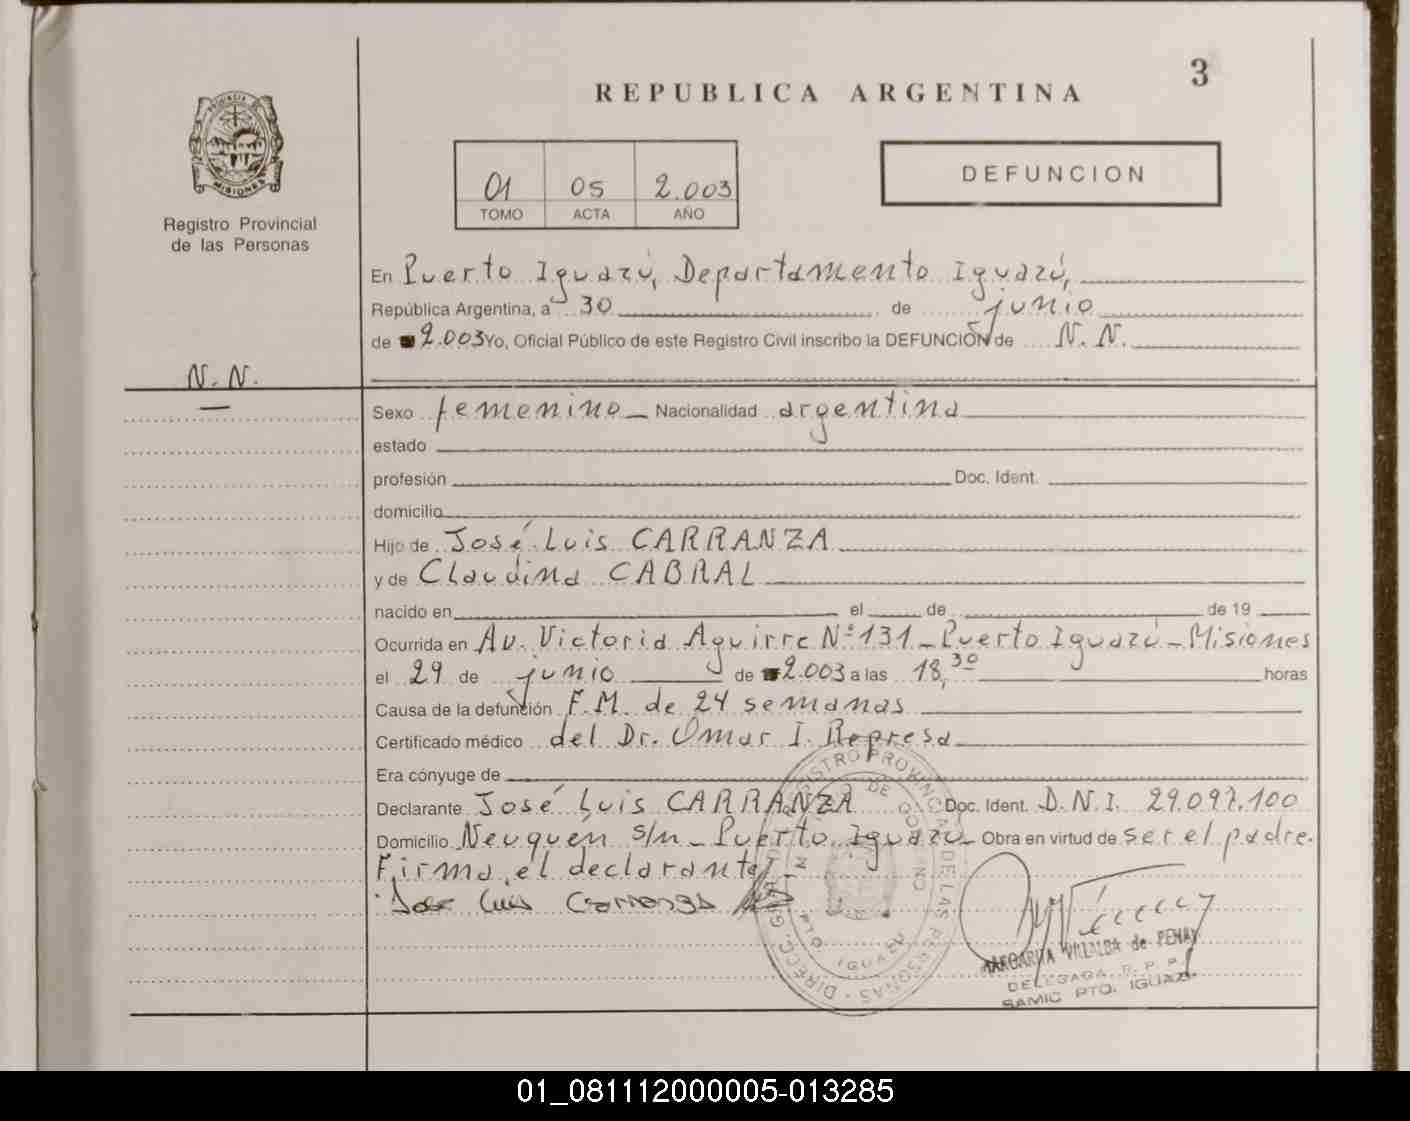 3
REPUBLICA ARGENTINA
PROVINCIA DE
MISIONES
Registro Provincial
de las Personas
01 05 2.003
TOMO ACTA AÑO
DEFUNCION
En Puerto Iguazú, Departamento Iguazú,
República Argentina, a 30 de junio
de 2.003 Yo, Oficial Público de este Registro Civil inscribo la DEFUNCIÓN de N. N.
N. N.
Sexo femenino Nacionalidad argentina
estado
profesión Doc. Ident.
domicilio
Hijo de José Luis CARRANZA
y de Claudina CABRAL
nacido en el de de 19
Ocurrida en Av. Victoria Aguirre Nº 131 - Puerto Iguazú - Misiones
el 29 de junio de 2.003 a las 18,30 horas
Causa de la defunción F.M. de 24 semanas
Certificado médico del Dr. Omar I. Represa
Era cónyuge de
Declarante José Luis CARRANZA Doc. Ident. D.N.I. 29.097.100
Domicilio Neuquén s/n - Puerto Iguazú Obra en virtud de ser el padre.
Firma el declarante
Jose Luis Carranza
DIREC. G. REGISTRO PROVINCIAL DE LAS PERSONAS
PTO. IGUAZU
MARGARITA VILLALBA de PENAY
DELEGADA R. P. P.
SAMIC PTO. IGUAZU
01_081112000005-013285